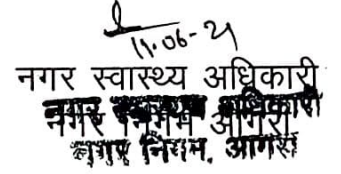 11.06-21
नगर स्वास्थ्य अधिकारी
नगर स्वास्थ्य अधिकारी
नगर निगम आगरा
नगर निगम, आगरा